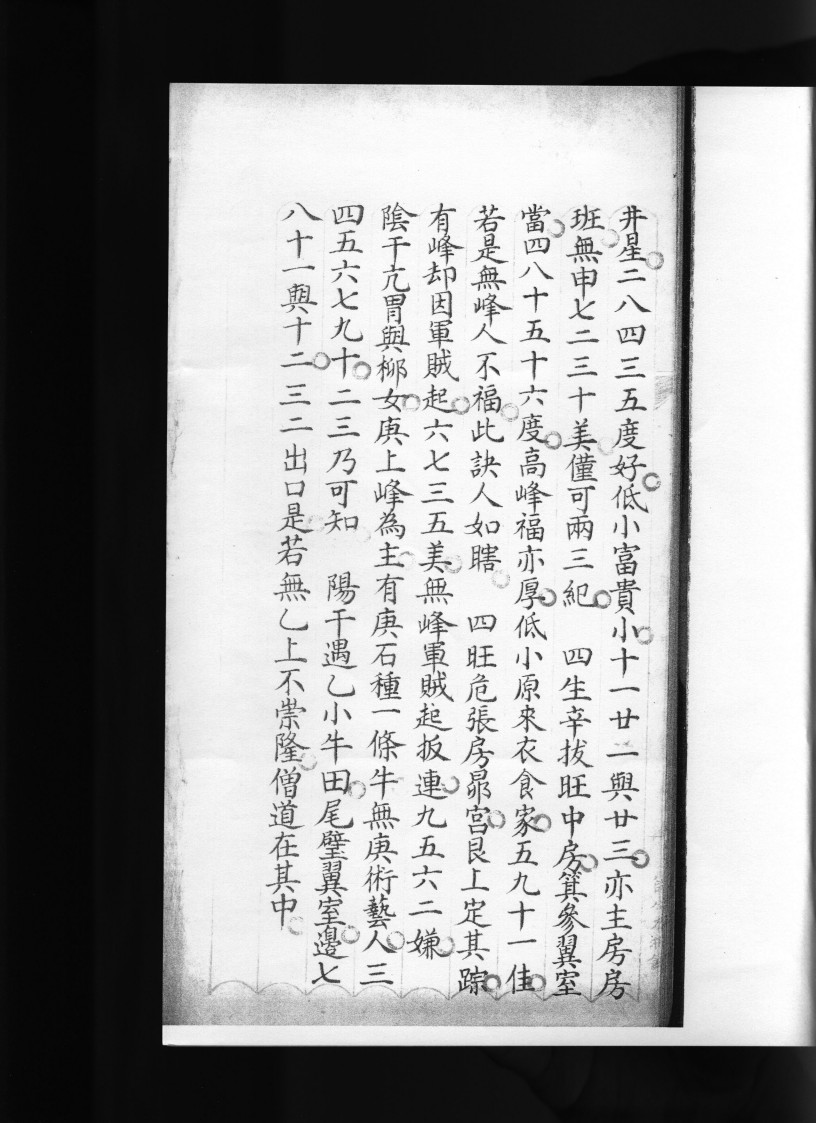 井星二八四三五度好低小富貴小十一廿二與廿三亦主房房
班無申七二三十美僅可兩三紀　四生辛拔旺中房箕參翼室
當四八十五十六度高峰福亦厚低小原來衣食家五九十一佳
若是無峰人不福此訣人如瞎　四旺危張房昴宮艮上定其踪
有峰却因軍賊起六七三五美無峰軍賊起扳連九五六二嫌
陰干亢胃與柳女庚上峰為主有庚石種一條牛無庚術藝人三
四五六七九十二三乃可知　陽干遇乙小牛田尾壁翼室邊七
八十一與十二三二出口是若無乙上不崇隆僧道在其中